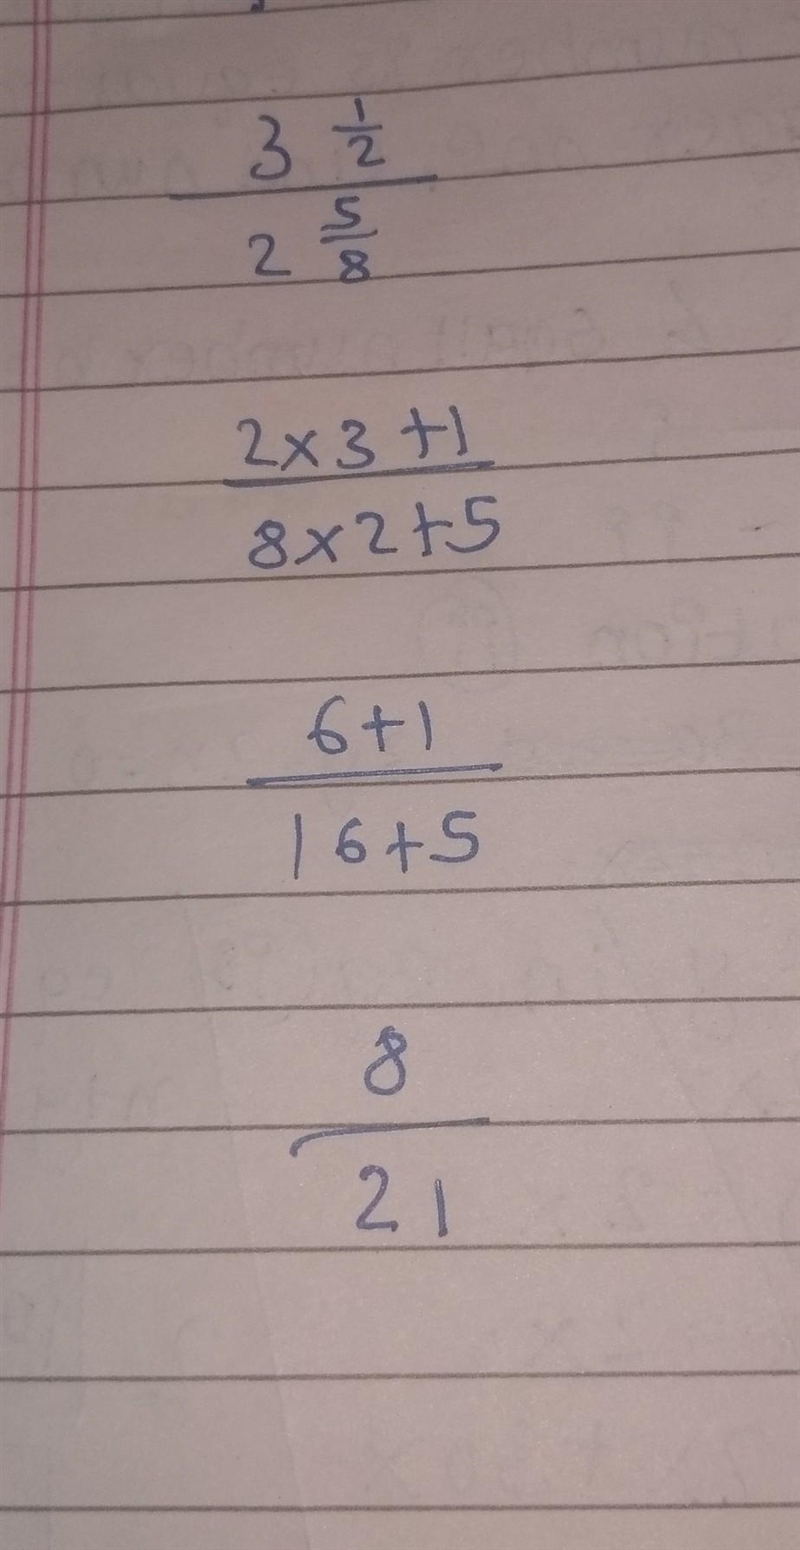 3 1/2
2 5/8
2x3+1
8x2+5
6+1
16+5
8
21